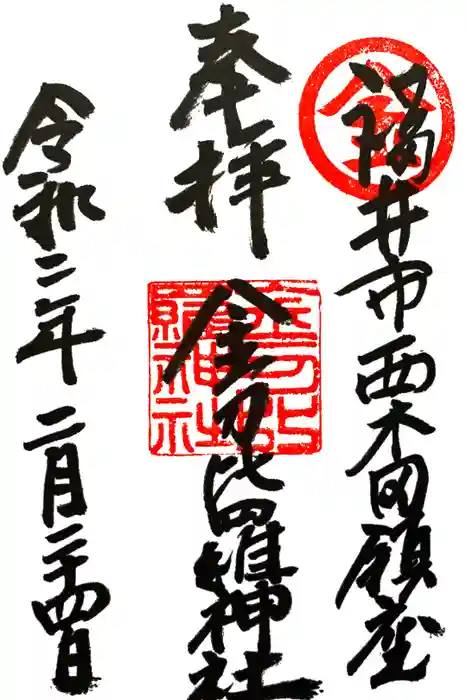 福井市西木田鎮座
金
奉拝
金刀比羅神社
金刀比
羅神社
令和二年二月二十四日